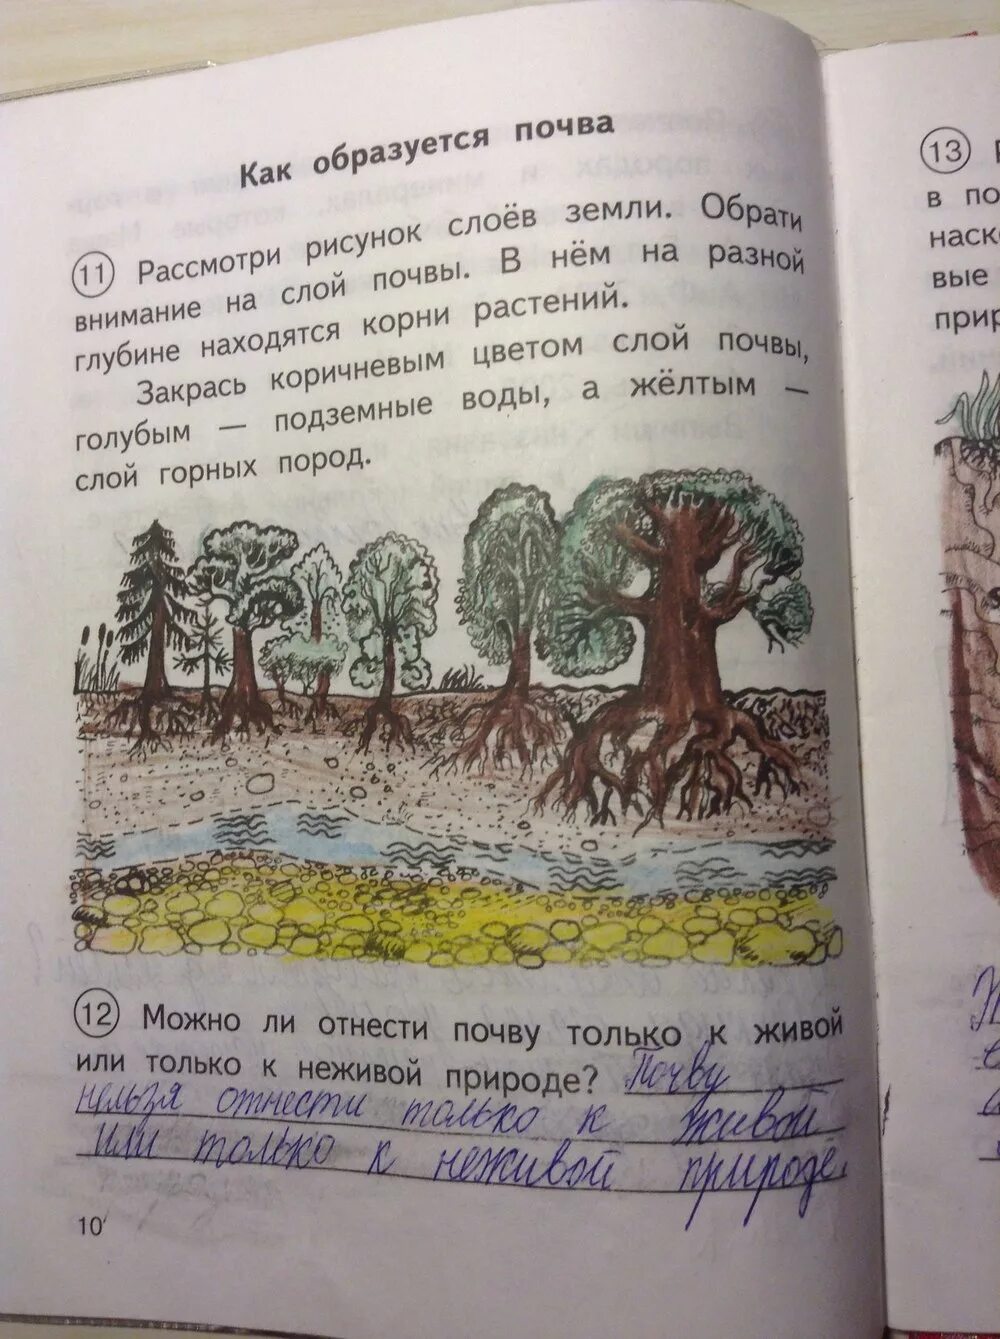 Как образуется почва
11 Рассмотри рисунок слоёв земли. Обрати
внимание на слой почвы. В нём на разной
глубине находятся корни растений.
Закрась коричневым цветом слой почвы,
голубым — подземные воды, а жёлтым —
слой горных пород.
12 Можно ли отнести почву только к живой
или только к неживой природе? Почву
нельзя отнести только к живой
или только к неживой природе.
10
13
в по
наск
вые
прир